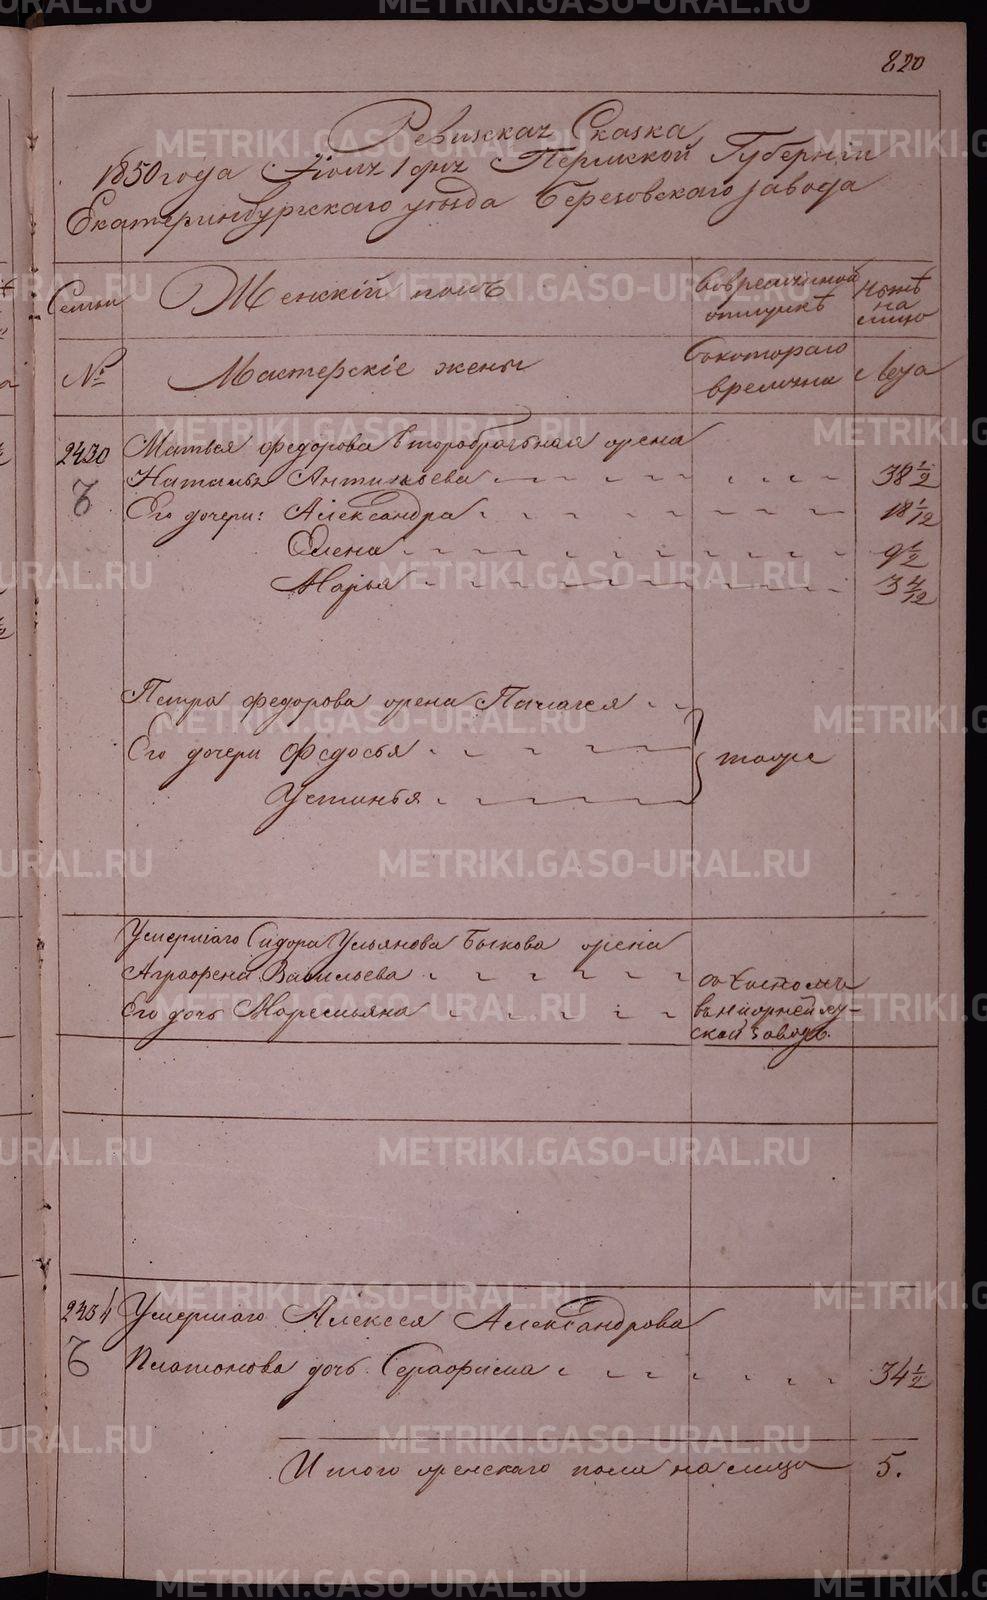 820
Ревизская Сказка
1850 года Июля 1 дня Пермской Губернiи
Екатеринбургскаго уезда Березовскаго завода
Семьи
Женскiй полъ
Во временной отлучкѣ
Нынѣ на лицо
№
Мастерскiе жены
Съ котораго времени
Лета
2430
Матвея Федорова второбрачьная жена
Наталья Антипьева
38 1/2
Его дочери: Александра
18 1/12
Елена
9 1/2
Марья
3 4/12
Петра Федорова жена Пелагея
Его дочери Федосья
тоже
Устинья
Умершаго Сидора Ульянова Быкова жена
Аграфена Васильева
Его дочь Маремьяна
въ Нижнейсу-
ской заводъ.
2434
Умершаго Алексея Александрова
Платонова дочь Серафима
34 1/2
Итого женскаго пола на лицо
5.
METRIKI.GASO-URAL.RU